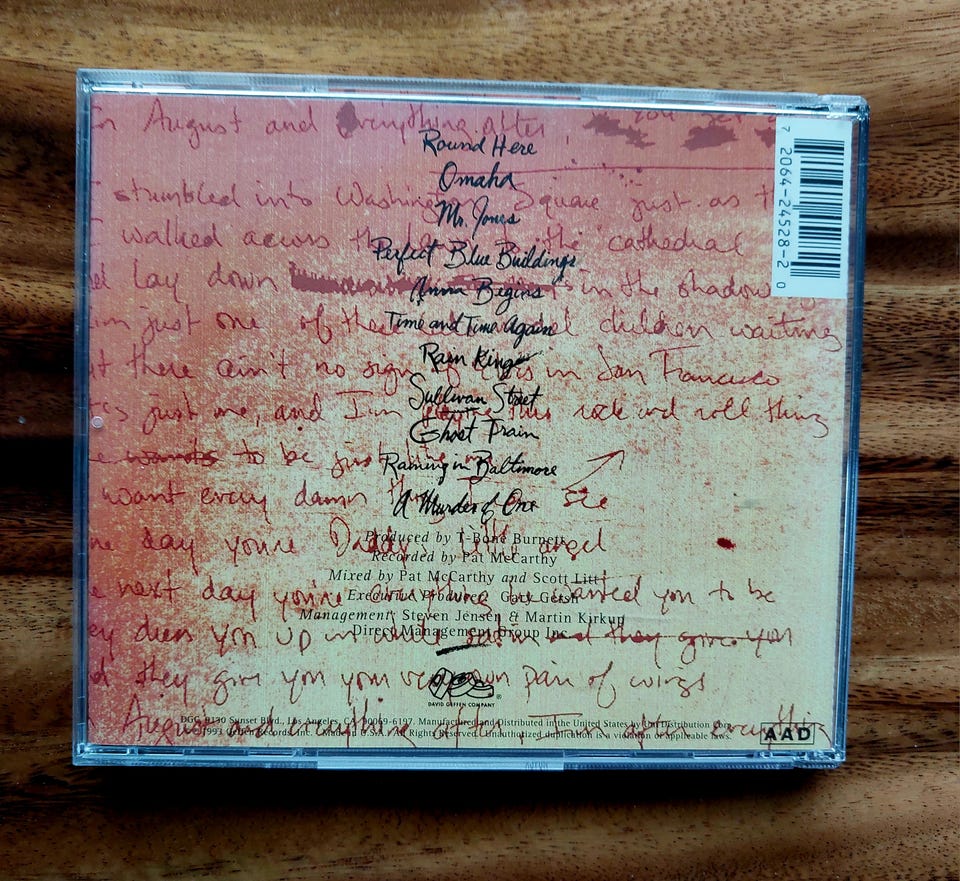 In August and Everything after You get
Round Here
Omaha
stumbled into Washington Square just as t
Mr. Jones
I walked across the the cathedral
Perfect Blue Buildings
lay down in the shadow
Anna Begins
I'm just one of the children waiting
Time and Time Again
there ain't no sign of in San Francisco
Rain King
Sullivan Street
just me, and I'm this rock and roll thing
Ghost Train
wants to be just
Raining in Baltimore
want every damn see
A Murder of One
Produced by T-Bone Burnett
day you're Daddy's angel
Recorded by Pat McCarthy
Mixed by Pat McCarthy and Scott Litt
next day you're wanted you to be
Executive Producer: Gary Gersh
Management: Steven Jensen & Martin Kirkup
Direct Management Group Inc.
dress you up in and they give you
they give you your very own pair of wings
DAVID GEFFEN COMPANY
DGC 9130 Sunset Blvd., Los Angeles, CA 90069-6197. Manufactured and Distributed in the United States by Uni Distribution Corp.
1993 Geffen Records, Inc. Made in U.S.A. All Rights Reserved. Unauthorized duplication is a violation of applicable laws.
August and everything after I everything
AAD
7 2064-24528-2 0